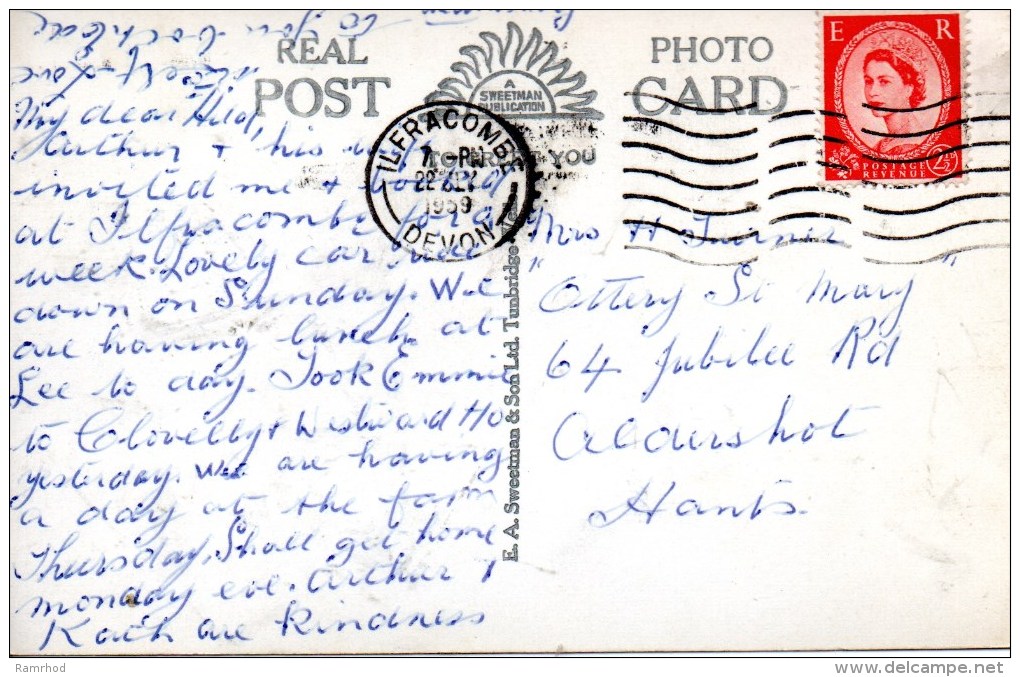 REAL
POST
PHOTO
CARD
A
SWEETMAN
PUBLICATION
TO YOU
E R
POSTAGE
REVENUE
2½D
ILFRACOMBE
7 - PM
22
1959
DEVON
My dear Hild,
Arthur + his
invited me +
at Ilfracombe for a
week. Lovely car ride
down on Sunday. We
are having lunch at
Lee to day. Took Emmie
to Clovelly + Westward Ho
yesterday. We are having
a day at the farm
Thursday, Shall get home
monday eve. Arthur +
Kath are kindness
to you both
Love
E. A. Sweetman & Son Ltd. Tunbridge
Mrs H Turner
"Ottery St Mary"
64 Jubilee Rd
Aldershot
Hants.
Ramrhod
www.delcampe.net